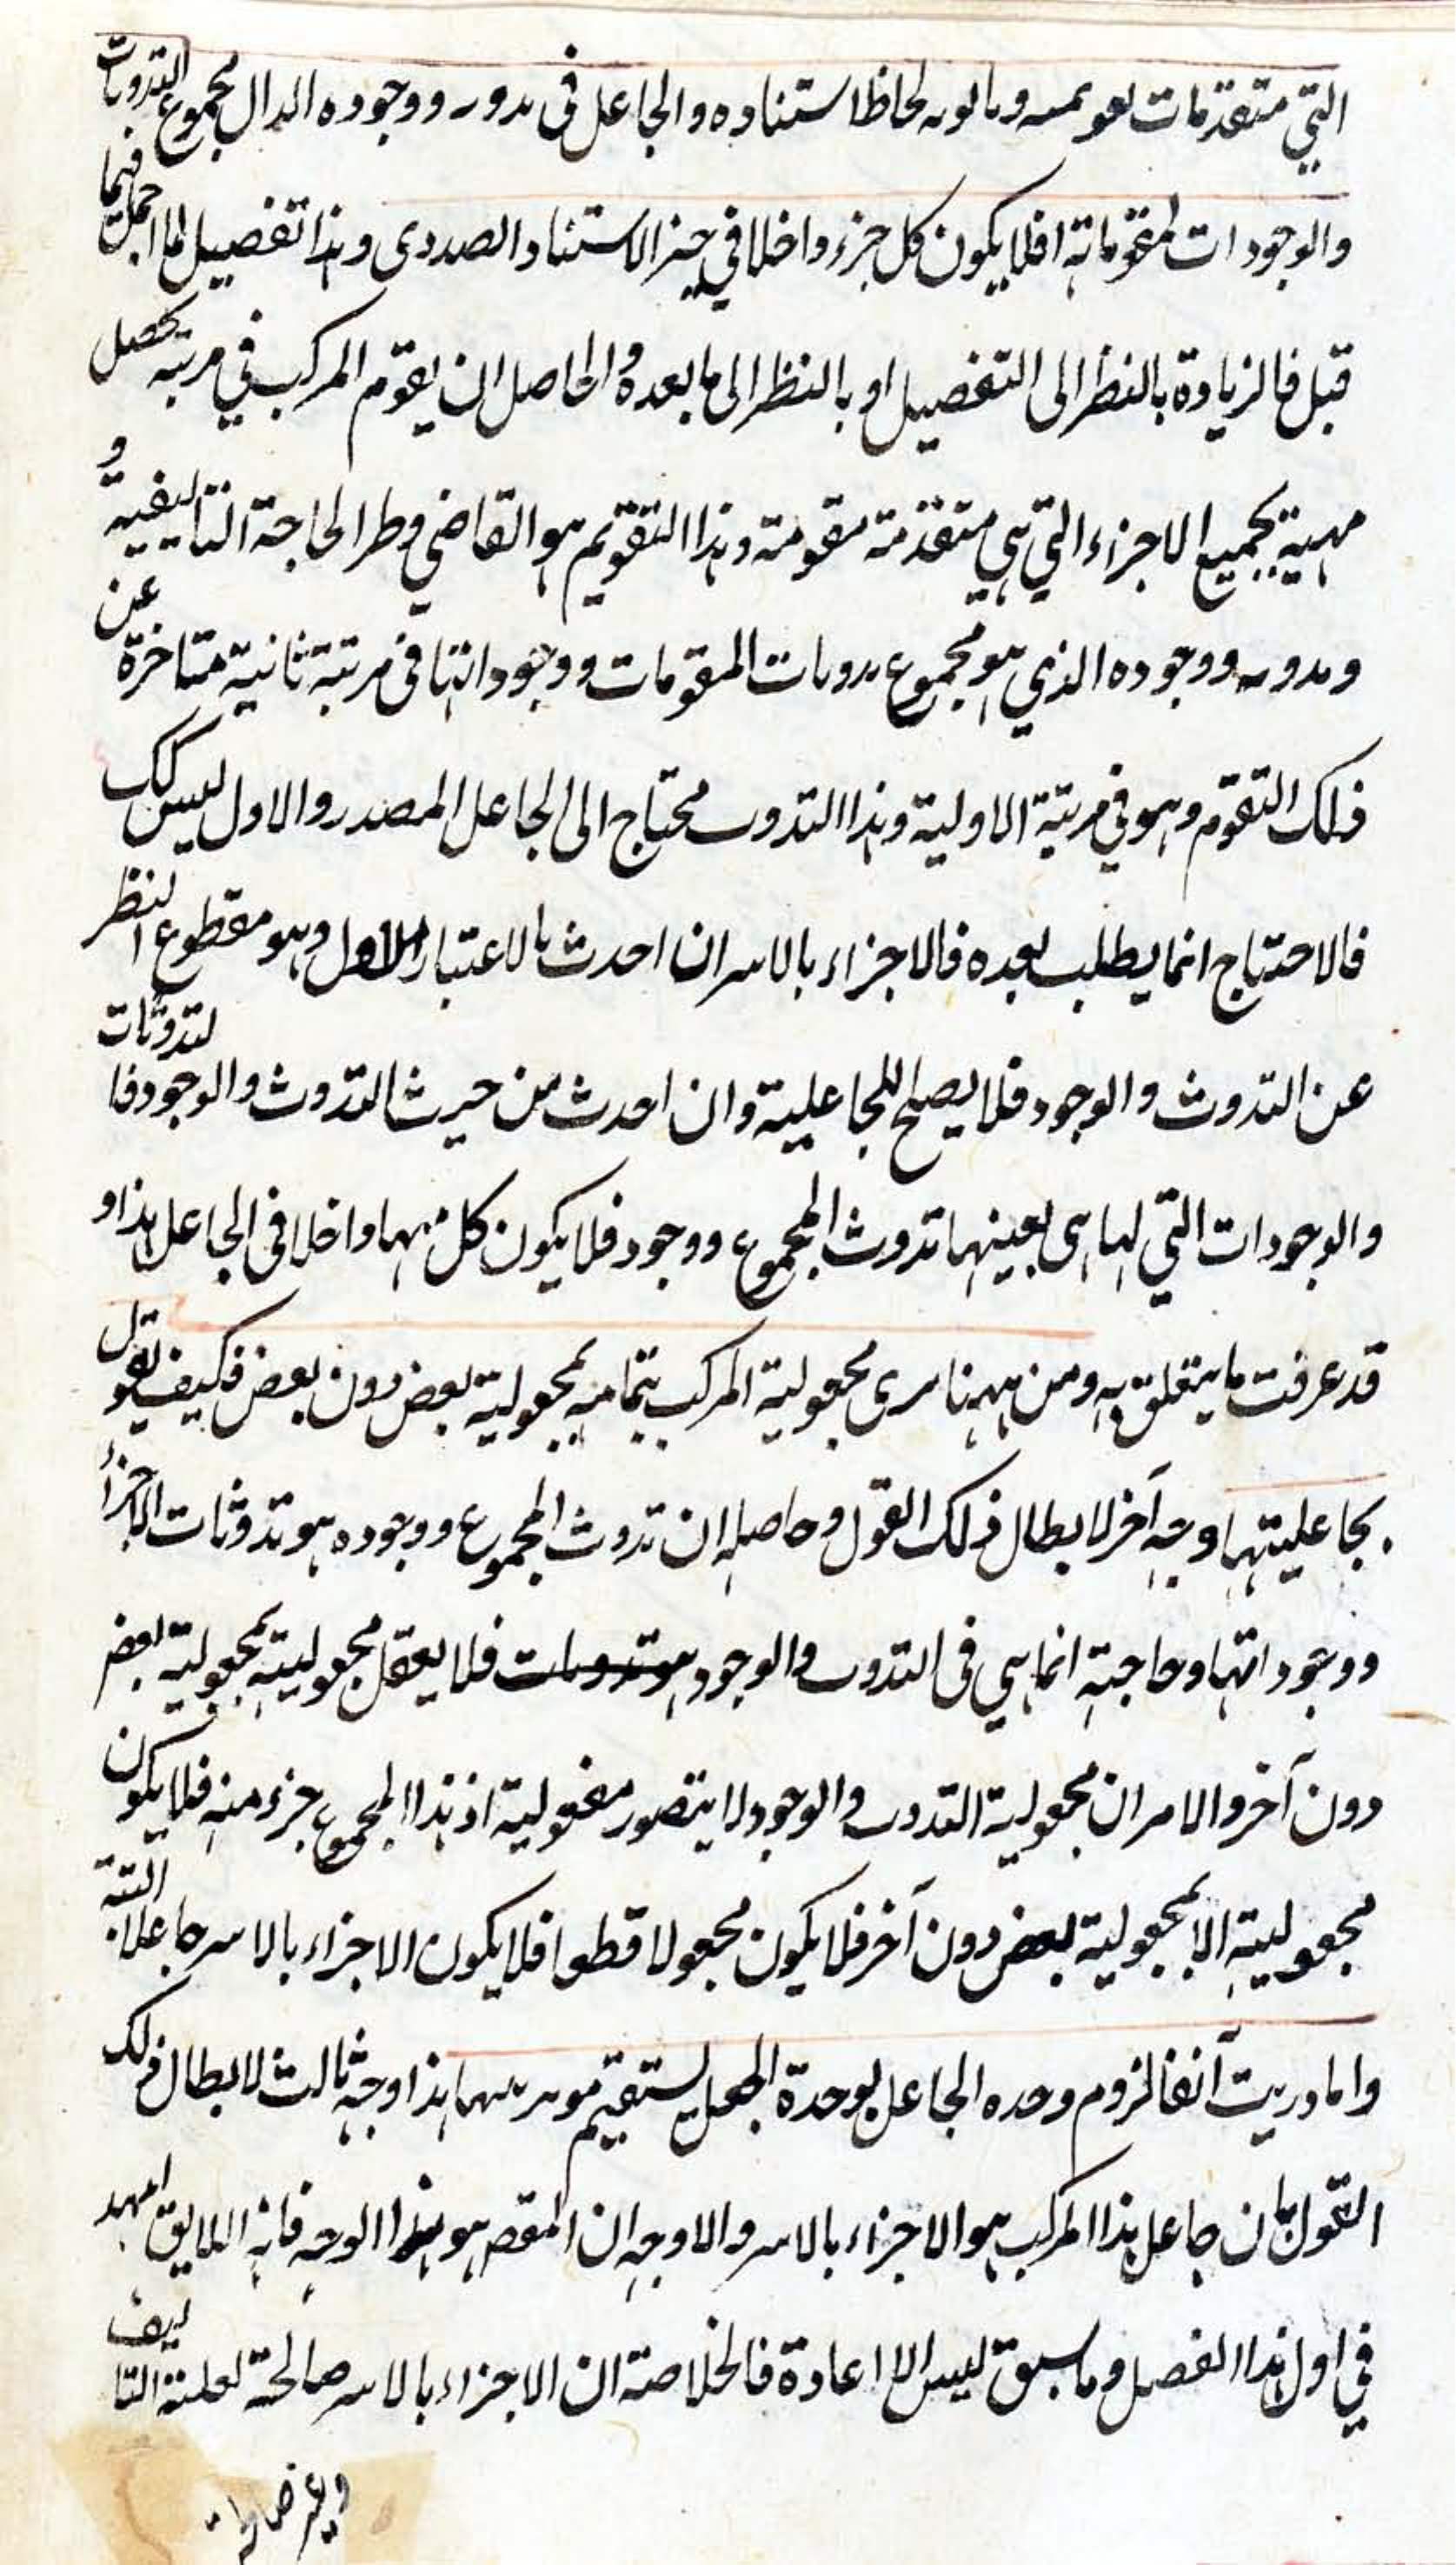 التي متقدمات لحاظ استناده والجاعل في تدوثه ووجوده الدال مجموع التدوثات
والوجودات لمقوماته فلا يكون كل جزء داخلا في حيز الاستناد الصدوري وهذا تفصيل لما اجمل فيما
قبل فالزيادة بالنظر الى التفصيل او بالنظر الى ما بعده والحاصل ان يقوم المركب في مرتبة تحصل
مهية بجميع الاجزاء التي هي متقدمة مقومة وهذا التقويم هو القاضي وطر الحاجة التاليفية و
وتدوثه ووجوده الذي هو مجموع تدوثات المقومات ووجوداتها في مرتبة ثانية متاخرة عن
ذلك التقوم وهو في مرتبة الاولية وهذا التدوث محتاج الى الجاعل المصدر والاول ليس كك
فالاحتياج انما يطلب بعده فالاجزاء بالاسر ان احدث بالاعتبار الاول وهو مقطوع النظر
عن التدوث والوجود فلا يصلح للجاعلية وان احدث من حيث التدوث والوجود فالتدوثات
والوجودات التي لها هي بعينها تدوث المجموع ووجود فلا يكون كل منهما داخلا في الجاعل هذا و
قد عرفت ما يتعلق به ومن ههنا سرى مجعولية المركب بتمامه بمجعولية بعض دون بعض فكيف تقول
بجاعليتها وجه آخر لابطال ذلك القول وحاصله ان تدوث المجموع ووجوده هو تدوثات الاجزاء
ووجوداتها وحاجته انما هي في التدوث والوجود هو تدوثات فلا يعقل مجعوليته بمجعولية بعض
دون آخر والامر ان مجعولية التدوث والوجود لا يتصور مفعولية اذ هذا المجموع جزء منه فلا يكون
مجعوليته الا بمجعولية بعض دون آخر فلا يكون مجعولا قطعا فلا يكون الاجزاء بالاسر جاعلا البتة
واما دريت آنفا لزوم وحده الجاعل لوحدة الجعل يستقيم هذا وجه ثالث لابطال ذلك
القول بان جاعل هذا المركب هو الاجزاء بالاسر والاوجه ان المقص هو هذا الوجه فانه اللايق
في اول هذا الفصل وما سبق ليس الا اعادة فالخلاصة ان الاجزاء بالاسر صالحة لعلية التاليف